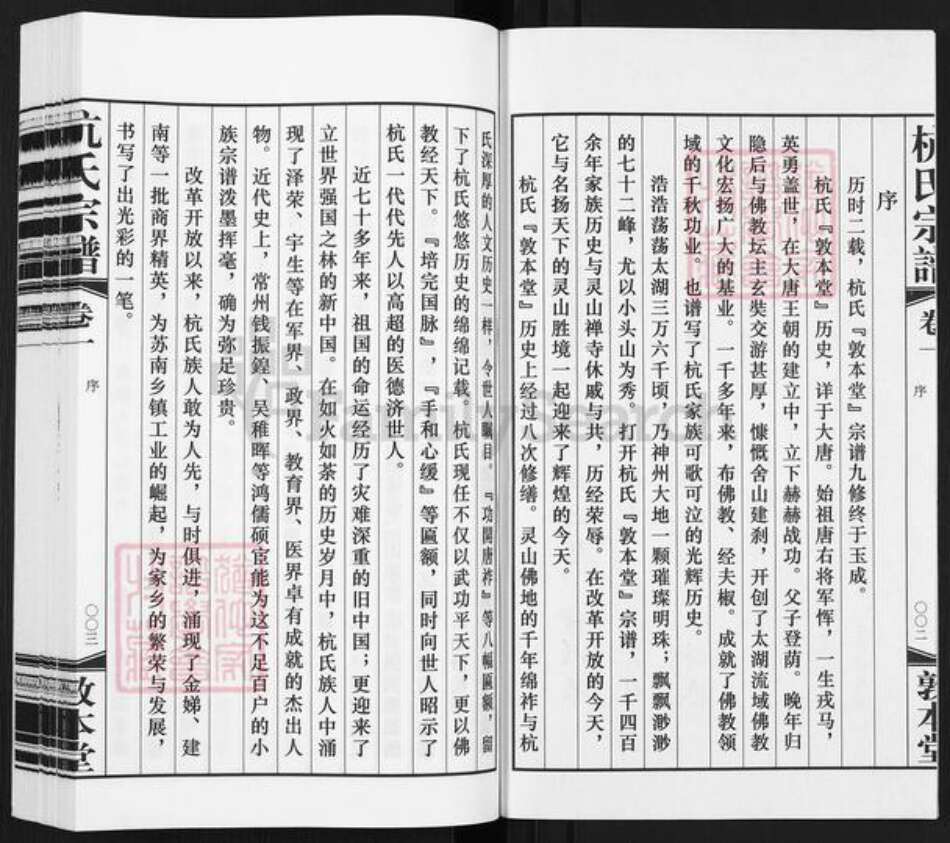 杭氏宗谱 卷一
序
〇〇二
敦本堂
序
历时二载，杭氏『敦本堂』宗谱九修终于玉成。
杭氏『敦本堂』历史，详于大唐。始祖唐右将军恽，一生戎马，
英勇盖世，在大唐王朝的建立中，立下赫赫战功。父子登荫。晚年归
隐后与佛教坛主玄奘交游甚厚，慷慨舍山建刹，开创了太湖流域佛教
文化宏扬广大的基业。一千多年来，布佛教、经夫椒。成就了佛教领
域的千秋功业。也谱写了杭氏家族可歌可泣的光辉历史。
浩浩荡荡太湖三万六千顷，乃神州大地一颗璀璨明珠；飘飘渺渺
的七十二峰，尤以小头山为秀。打开杭氏『敦本堂』宗谱，一千四百
余年家族历史与灵山禅寺休戚与共，历经荣辱。在改革开放的今天，
它与名扬天下的灵山胜境一起迎来了辉煌的今天。
杭氏『敦本堂』历史上经过八次修缮。灵山佛地的千年绵祚与杭
氏深厚的人文历史一样，令世人瞩目。『功開唐祚』等八幅匾额，留
下了杭氏悠悠历史的绵绵记载。杭氏现任不仅以武功平天下，更以佛
教经天下。『培完国脉』，『手和心缓』等匾额，同时向世人昭示了
杭氏一代代先人以高超的医德济世人。
近七十多年来，祖国的命运经历了灾难深重的旧中国；更迎来了
立世界强国之林的新中国。在如火如荼的历史岁月中，杭氏族人中涌
现了泽荣、宇生等在军界、政界、教育界、医界卓有成就的杰出人
物。近代史上，常州钱振鍠、吴稚晖等鸿儒硕宦能为这不足百户的小
族宗谱泼墨挥毫，确为弥足珍贵。
改革开放以来，杭氏族人敢为人先，与时俱进，涌现了金娣、建
南等一批商界精英，为苏南乡镇工业的崛起，为家乡的繁荣与发展，
书写了出光彩的一笔。
杭氏宗谱 卷一
序
〇〇三
敦本堂
FamilySearch